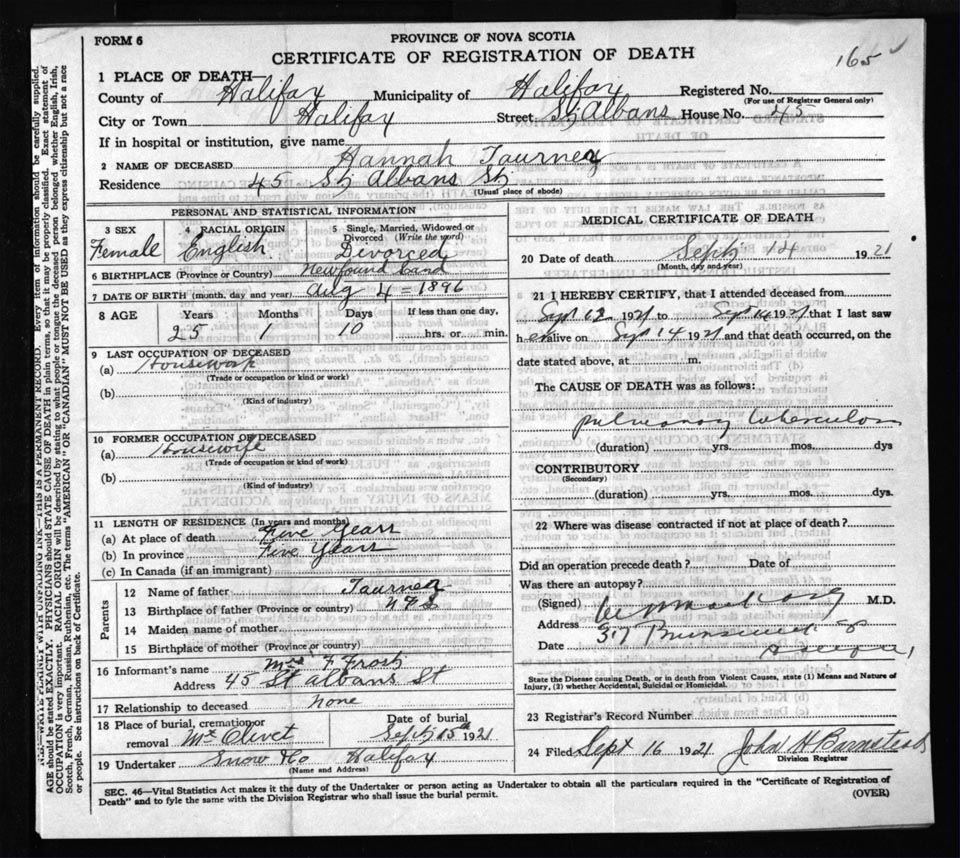 FORM 6
PROVINCE OF NOVA SCOTIA
CERTIFICATE OF REGISTRATION OF DEATH
165
1 PLACE OF DEATH—
County of Halifax Municipality of Halifax Registered No.
(For use of Registrar General only)
City or Town Halifax Street St Albans House No. 45
If in hospital or institution, give name
2 NAME OF DECEASED Hannah
Residence 45 St Albans St
(Usual place of abode)
PERSONAL AND STATISTICAL INFORMATION
3 SEX Female
4 RACIAL ORIGIN English
5 Single, Married, Widowed or Divorced (Write the word) Divorced
6 BIRTHPLACE (Province or Country) Newfoundland
7 DATE OF BIRTH (month, day and year) Aug 4 = 1896
8 AGE Years Months Days If less than one day,
25 1 10 hrs. or min.
9 LAST OCCUPATION OF DECEASED
(a) Housework
(Trade or occupation or kind or work)
(b)
(Kind of industry)
10 FORMER OCCUPATION OF DECEASED
(a) Housewife
(Trade of occupation or kind of work)
(b)
(Kind of industry)
11 LENGTH OF RESIDENCE (In years and months)
(a) At place of death Five Years
(b) In province Five Years
(c) In Canada (if an immigrant)
Parents
12 Name of father
13 Birthplace of father (Province or country)
14 Maiden name of mother
15 Birthplace of mother (Province or country)
16 Informant's name Mrs F Frost
Address 45 St Albans St
17 Relationship to deceased None
18 Place of burial, cremation or removal Mt Olivet
Date of burial Sept 15th 1921
19 Undertaker Snow & Co Halifax
(Name and Address)
MEDICAL CERTIFICATE OF DEATH
20 Date of death Sept 14 1921
(Month, day and year)
21 I HEREBY CERTIFY, that I attended deceased from
Sept 12 1921 to Sept 14 1921 that I last saw
h er alive on Sept 14 1921 and that death occurred, on the
date stated above, at m.
The CAUSE OF DEATH was as follows:
Pulmonary tuberculosis
(duration) yrs. mos. dys
CONTRIBUTORY
(Secondary)
(duration) yrs. mos. dys.
22 Where was disease contracted if not at place of death?
Did an operation precede death? Date of
Was there an autopsy?
(Signed) M.D.
Address 317 Brunswick St
Date
State the Disease causing Death, or in death from Violent Causes, state (1) Means and Nature of Injury, (2) whether Accidental, Suicidal or Homicidal.
23 Registrar's Record Number
24 Filed Sept 16 1921 John H Barnstead
Division Registrar
SEC. 46—Vital Statistics Act makes it the duty of the Undertaker or person acting as Undertaker to obtain all the particulars required in the "Certificate of Registration of
Death" and to fyle the same with the Division Registrar who shall issue the burial permit. (OVER)
N.B.—WRITE PLAINLY WITH UNFADING INK—THIS IS A PERMANENT RECORD. Every item of information should be carefully supplied.
AGE should be stated EXACTLY. PHYSICIANS should STATE CAUSE OF DEATH in plain terms, so that it may be properly classified. Exact statement of
OCCUPATION is very important. RACIAL ORIGIN will be described by stating to what people or tongue the deceased person belonged whether English, Irish,
Scotch, French, German, Russian, Ruthenian, etc. The terms "AMERICAN" OR "CANADIAN" MUST NOT BE USED as they express citizenship but not a race
or people. See instructions on back of Certificate.